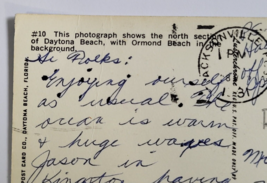 #10 This photograph shows the north sect
of Daytona Beach, with Ormond Beach in
background.
Hi Folks:
Enjoying ourselve
as usual. The
ocean is warm
& huge waves
Jason in
Kingston having
POST CARD CO., DAYTONA BEACH, FLORIDA
JACKSONVILLE
PM
31